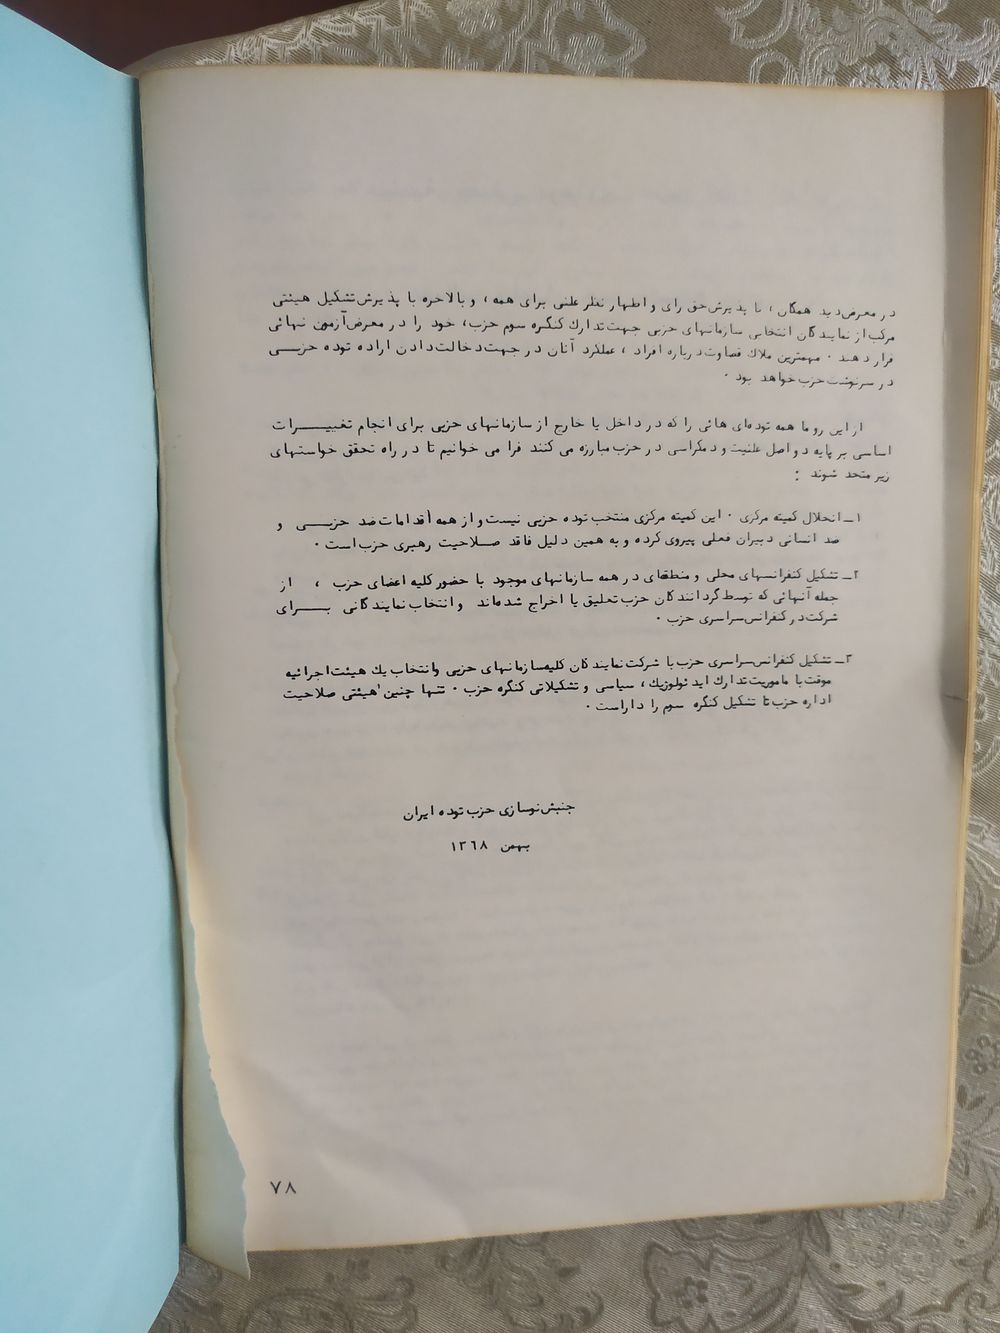 در معرض دید همگان، با پذیرش حق رای و اظهار نظر علنی برای همه، و بالاخره با پذیرش تشکیل هیئتی
مرکب از نمایندگان انتخابی سازمانهای حزبی جهت تدارک کنگره سوم حزب، خود را در معرض آزمون نهائی
قرار دهند. مهمترین ملاک قضاوت درباره افراد، عملکرد آنان در جهت دخالت دادن اراده توده حزبی
در سرنوشت حزب خواهد بود.
از این رو ما همه توده‌ای هائی را که در داخل یا خارج از سازمانهای حزبی برای انجام تغییرات
اساسی بر پایه دو اصل علنیت و دمکراسی در حزب مبارزه می کنند فرا می خوانیم تا در راه تحقق خواستهای
زیر متحد شوند :
۱ـ انحلال کمیته مرکزی. این کمیته مرکزی منتخب توده حزبی نیست و از همه اقدامات ضد حزبی و
ضد انسانی دبیران فعلی پیروی کرده و به همین دلیل فاقد صلاحیت رهبری حزب است.
۲ـ تشکیل کنفرانسهای محلی و منطقه‌ای در همه سازمانهای موجود با حضور کلیه اعضای حزب، از
جمله آنهائی که توسط گردانندگان حزب تعلیق یا اخراج شده‌اند و انتخاب نمایندگانی برای
شرکت در کنفرانس سراسری حزب.
۳ـ تشکیل کنفرانس سراسری حزب با شرکت نمایندگان کلیه سازمانهای حزبی و انتخاب یک هیئت اجرائیه
موقت با ماموریت تدارک ایدئولوژیک، سیاسی و تشکیلاتی کنگره حزب. تنها چنین هیئتی صلاحیت
اداره حزب تا تشکیل کنگره سوم را داراست.
جنبش نوسازی حزب توده ایران
بهمن ۱۳۶۸
۷۸